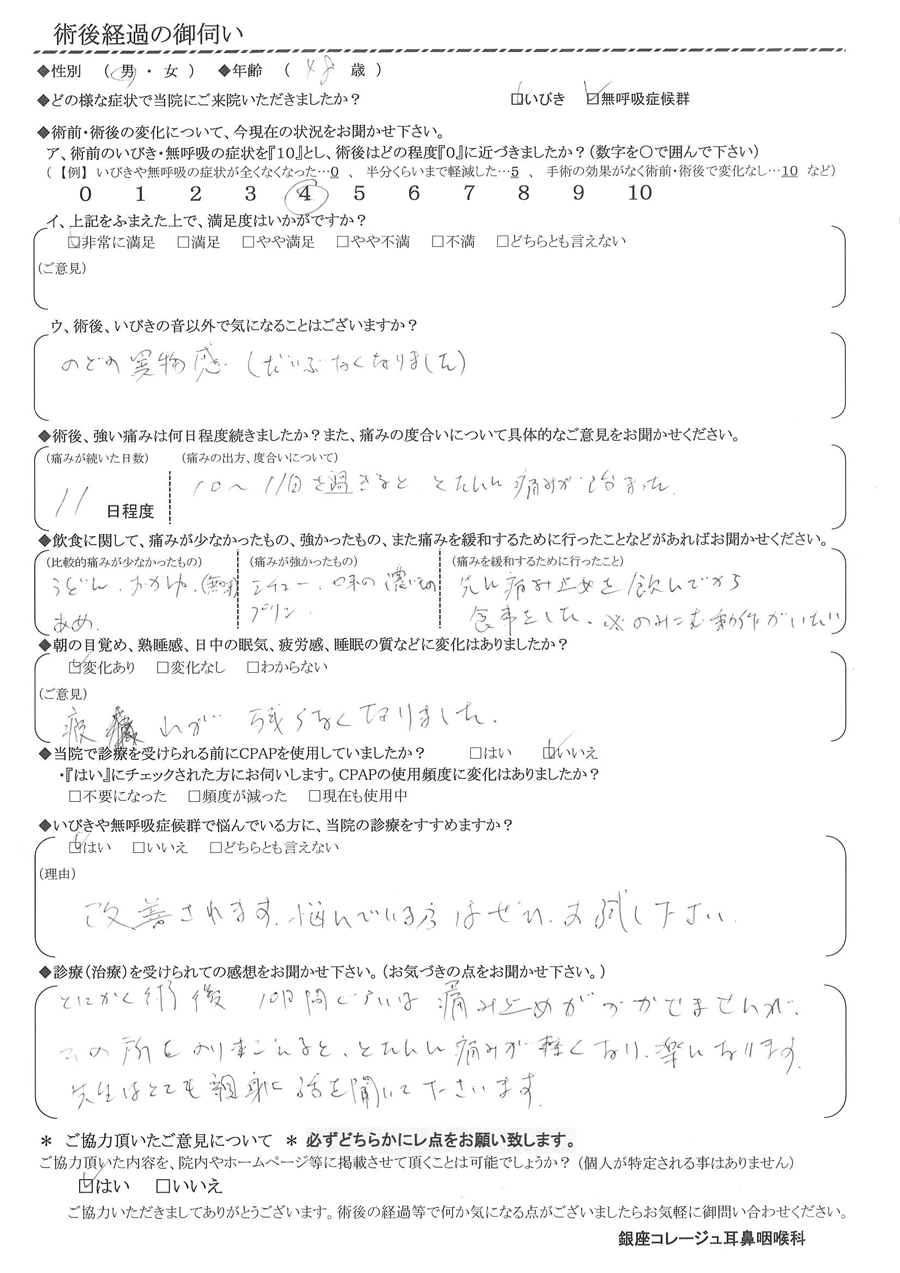 術後経過の御伺い
◆性別　（ 男 ・ 女 ）　◆年齢　（ 48 歳 ）
◆どの様な症状で当院にご来院いただきましたか？　□いびき　☑無呼吸症候群
◆術前・術後の変化について、今現在の状況をお聞かせ下さい。
ア、術前のいびき・無呼吸の症状を『10』とし、術後はどの程度『0』に近づきましたか？（数字を○で囲んで下さい）
（ 【例】 いびきや無呼吸の症状が全くなくなった…0 、 半分くらいまで軽減した…5 、 手術の効果がなく術前・術後で変化なし…10 など）
0 1 2 3 4 5 6 7 8 9 10
イ、上記をふまえた上で、満足度はいかがですか？
☑非常に満足　□満足　□やや満足　□やや不満　□不満　□どちらとも言えない
（ご意見）
ウ、術後、いびきの音以外で気になることはございますか？
のどの異物感（だいぶなくなりました）
◆術後、強い痛みは何日程度続きましたか？また、痛みの度合いについて具体的なご意見をお聞かせください。
（痛みが続いた日数）　（痛みの出方、度合いについて）
11 日程度　10～11日を過ぎると とたんに痛みが治まった.
◆飲食に関して、痛みが少なかったもの、強かったもの、また痛みを緩和するために行ったことなどがあればお聞かせください。
（比較的痛みが少なかったもの）　（痛みが強かったもの）　（痛みを緩和するために行ったこと）
うどん．おかゆ．　シチュー．味の濃いもの　先に痛み止めを飲んでから
あめ．　プリン．　食事をした．※のみこむ動作がいたい
◆朝の目覚め、熟睡感、日中の眠気、疲労感、睡眠の質などに変化はありましたか？
☑変化あり　□変化なし　□わからない
（ご意見）
疲れが 残らなくなりました．
◆当院で診療を受けられる前にCPAPを使用していましたか？　□はい　☑いいえ
・『はい』にチェックされた方にお伺いします。CPAPの使用頻度に変化はありましたか？
□不要になった　□頻度が減った　□現在も使用中
◆いびきや無呼吸症候群で悩んでいる方に、当院の診療をすすめますか？
☑はい　□いいえ　□どちらとも言えない
（理由）
改善されます．悩んでいる方はぜひ．お試し下さい．
◆診療（治療）を受けられての感想をお聞かせ下さい。（お気づきの点をお聞かせ下さい。）
とにかく術後 10日間ぐらいは 痛み止めがかかせませんが、
その所をのりきえると、とたんに痛みが軽くなり、楽になります．
先生はとても親身に話を聞いて下さいます．
＊ ご協力頂いたご意見について ＊ 必ずどちらかにレ点をお願い致します。
ご協力頂いた内容を、院内やホームページ等に掲載させて頂くことは可能でしょうか？（個人が特定される事はありません）
☑はい　□いいえ
ご協力いただきましてありがとうございます。術後の経過等で何か気になる点がございましたらお気軽に御問い合わせください。
銀座コレージュ耳鼻咽喉科